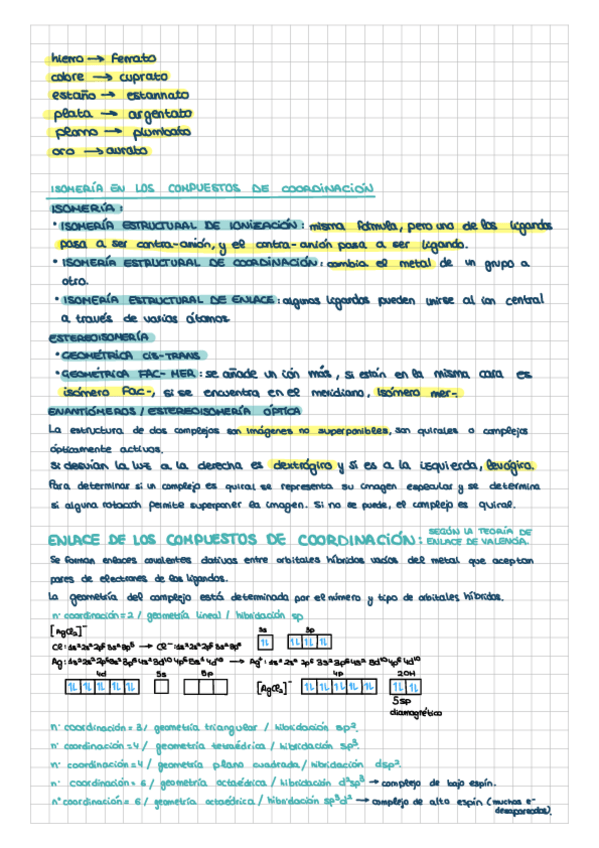 hierro → ferrato
cobre → cuprato
estaño → estannato
plata → argentato
plomo → plumbato
oro → aurato
ISOMERÍA EN LOS COMPUESTOS DE COORDINACIÓN
ISOMERÍA:
• ISOMERÍA ESTRUCTURAL DE IONIZACIÓN: misma fórmula, pero uno de los ligandos
pasa a ser contra-anión, y el contra-anión pasa a ser ligando.
• ISOMERÍA ESTRUCTURAL DE COORDINACIÓN: cambia el metal de un grupo a
otro.
• ISOMERÍA ESTRUCTURAL DE ENLACE: algunos ligandos pueden unirse al ion central
a través de varios átomos
ESTEREOISOMERÍA
• GEOMÉTRICA CIS-TRANS
• GEOMÉTRICA FAC-MER: se añade un ión más, si están en la misma cara es
isómero fac-, si se encuentra en el meridiano, isómero mer-.
ENANTIÓMEROS / ESTEREOISOMERÍA ÓPTICA
La estructura de dos complejos son imágenes no superponibles, son quirales o complejos
ópticamente activos.
Si desvían la luz a la derecha es dextrógiro y si es a la izquierda, levógiro.
Para determinar si un complejo es quiral se representa su imagen especular y se determina
si alguna rotación permite superponer la imagen. Si no se puede, el complejo es quiral.
ENLACE DE LOS COMPUESTOS DE COORDINACIÓN: SEGÚN LA TEORÍA DE
ENLACE DE VALENCIA.
Se forman enlaces covalentes dativos entre orbitales híbridos vacíos del metal que aceptan
pares de electrones de los ligandos.
La geometría del complejo está determinada por el número y tipo de orbitales híbridos.
nº coordinación = 2 / geometría lineal / hibridación sp
[AgCl₂]⁻
3s 3p
Cl: 1s² 2s² 2p⁶ 3s² 3p⁵ → Cl⁻: 1s² 2s² 2p⁶ 3s² 3p⁶
Ag: 1s² 2s² 2p⁶ 3s² 3p⁶ 4s² 3d¹⁰ 4p⁶ 5s¹ 4d¹⁰ → Ag⁺: 1s² 2s² 2p⁶ 3s² 3p⁶ 4s² 3d¹⁰ 4p⁶ 4d¹⁰
4d 5s 5p [AgCl₂]⁻ 4p 2OH
5sp
diamagnético
nº coordinación = 3 / geometría triangular / hibridación sp².
nº coordinación = 4 / geometría tetraédrica / hibridación sp³.
nº coordinación = 4 / geometría plano cuadrada / hibridación dsp².
nº coordinación = 6 / geometría octaédrica / hibridación d²sp³ → complejo de bajo espín.
nº coordinación = 6 / geometría octaédrica / hibridación sp³d² → complejo de alto espín (muchos e⁻
desapareados).